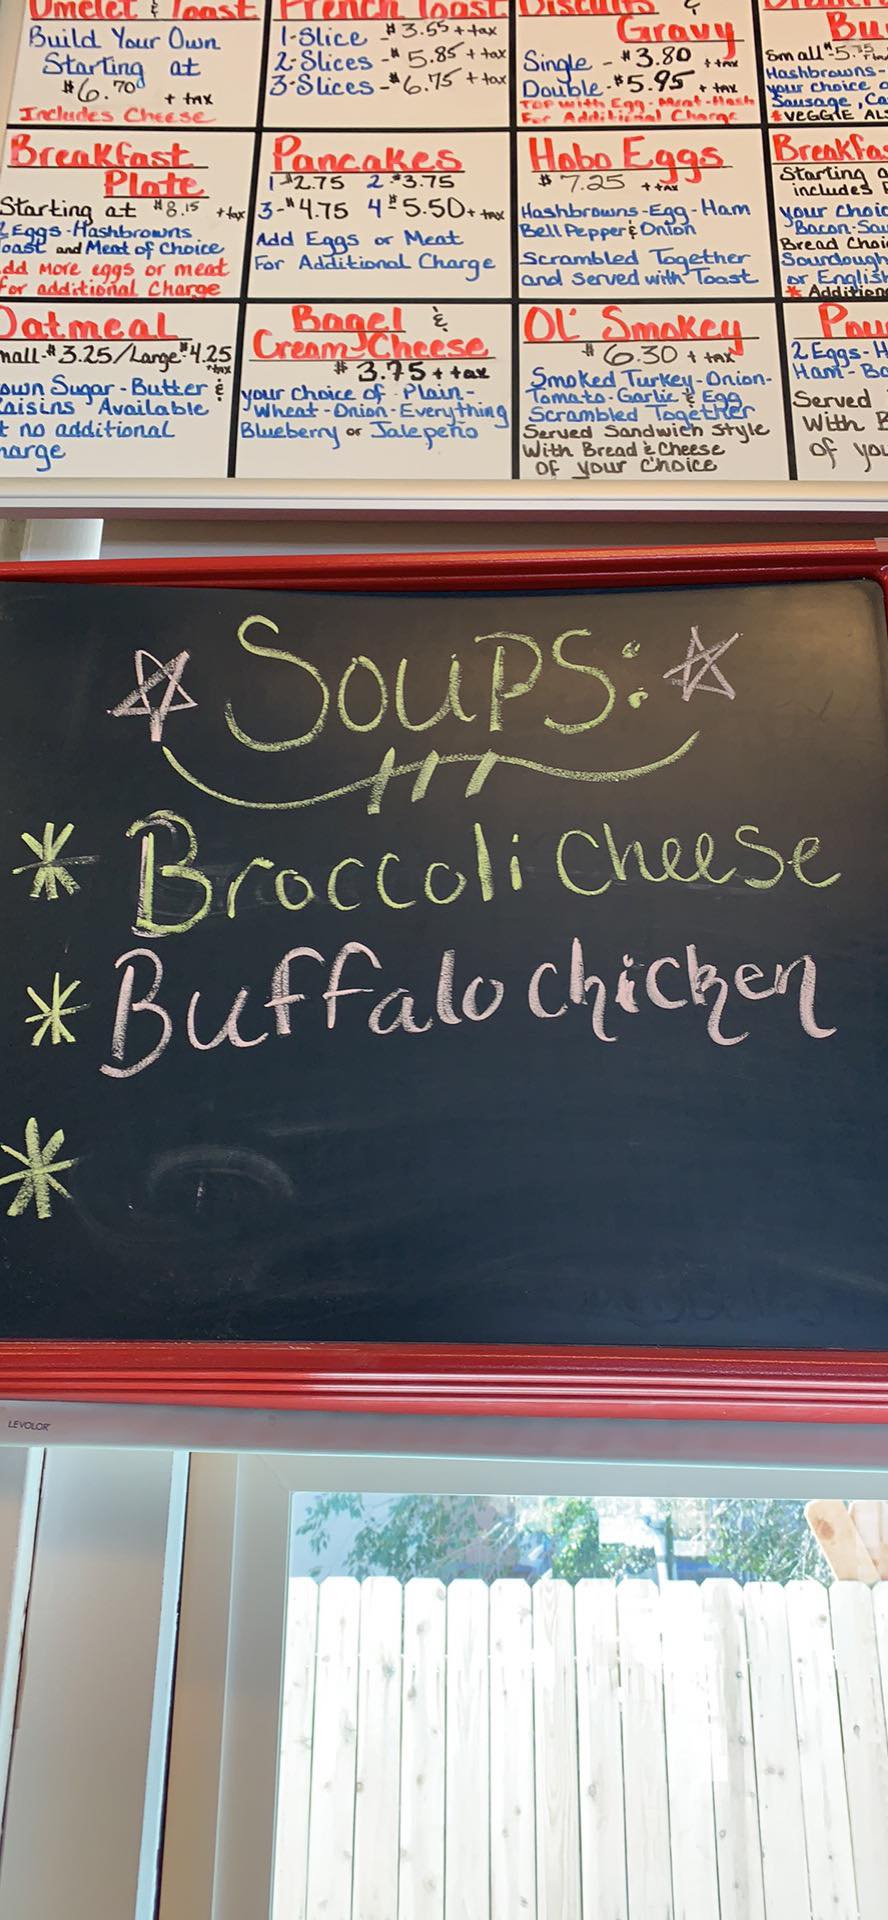 Omelet & Toast
Build Your Own
Starting at
$6.70 + tax
Includes Cheese
French Toast
1-Slice - $3.55 + tax
2-Slices - $5.85 + tax
3-Slices - $6.75 + tax
Biscuits &
Gravy
Single - $3.80 + tax
Double - $5.95 + tax
Top with Egg - Meat - Hash
For Additional Charge
Bu
Small $5.75
Hashbrowns -
your choice o
Sausage, Ca
*VEGGIE AL
Breakfast
Plate
Starting at $8.15 + tax
2 Eggs - Hashbrowns
oast and Meat of Choice
dd More eggs or meat
for additional Charge
Pancakes
1-$2.75 2-$3.75
3-$4.75 4-$5.50 + tax
Add Eggs or Meat
For Additional Charge
Hobo Eggs
$7.25 + tax
Hashbrowns - Egg - Ham
Bell Pepper & Onion
Scrambled Together
and Served with Toast
Breakfas
Starting a
includes
your Choic
Bacon - Sau
Bread Choi
Sourdough
or English
* Addition
Oatmeal
mall - $3.25 / Large $4.25
+ tax
own Sugar - Butter &
aisins Available
t no additional
harge
Bagel &
Cream Cheese
$3.75 + tax
your choice of - Plain -
Wheat - Onion - Everything
Blueberry or Jalepeño
OL' Smokey
$6.30 + tax
Smoked Turkey - Onion -
Tomato - Garlic & Egg
Scrambled Together
Served Sandwich Style
With Bread & Cheese
of your Choice
2 Eggs - H
Ham - Ba
Served
With B
of you
Soups:
* Broccoli Cheese
* Buffalo chicken
*
LEVOLOR